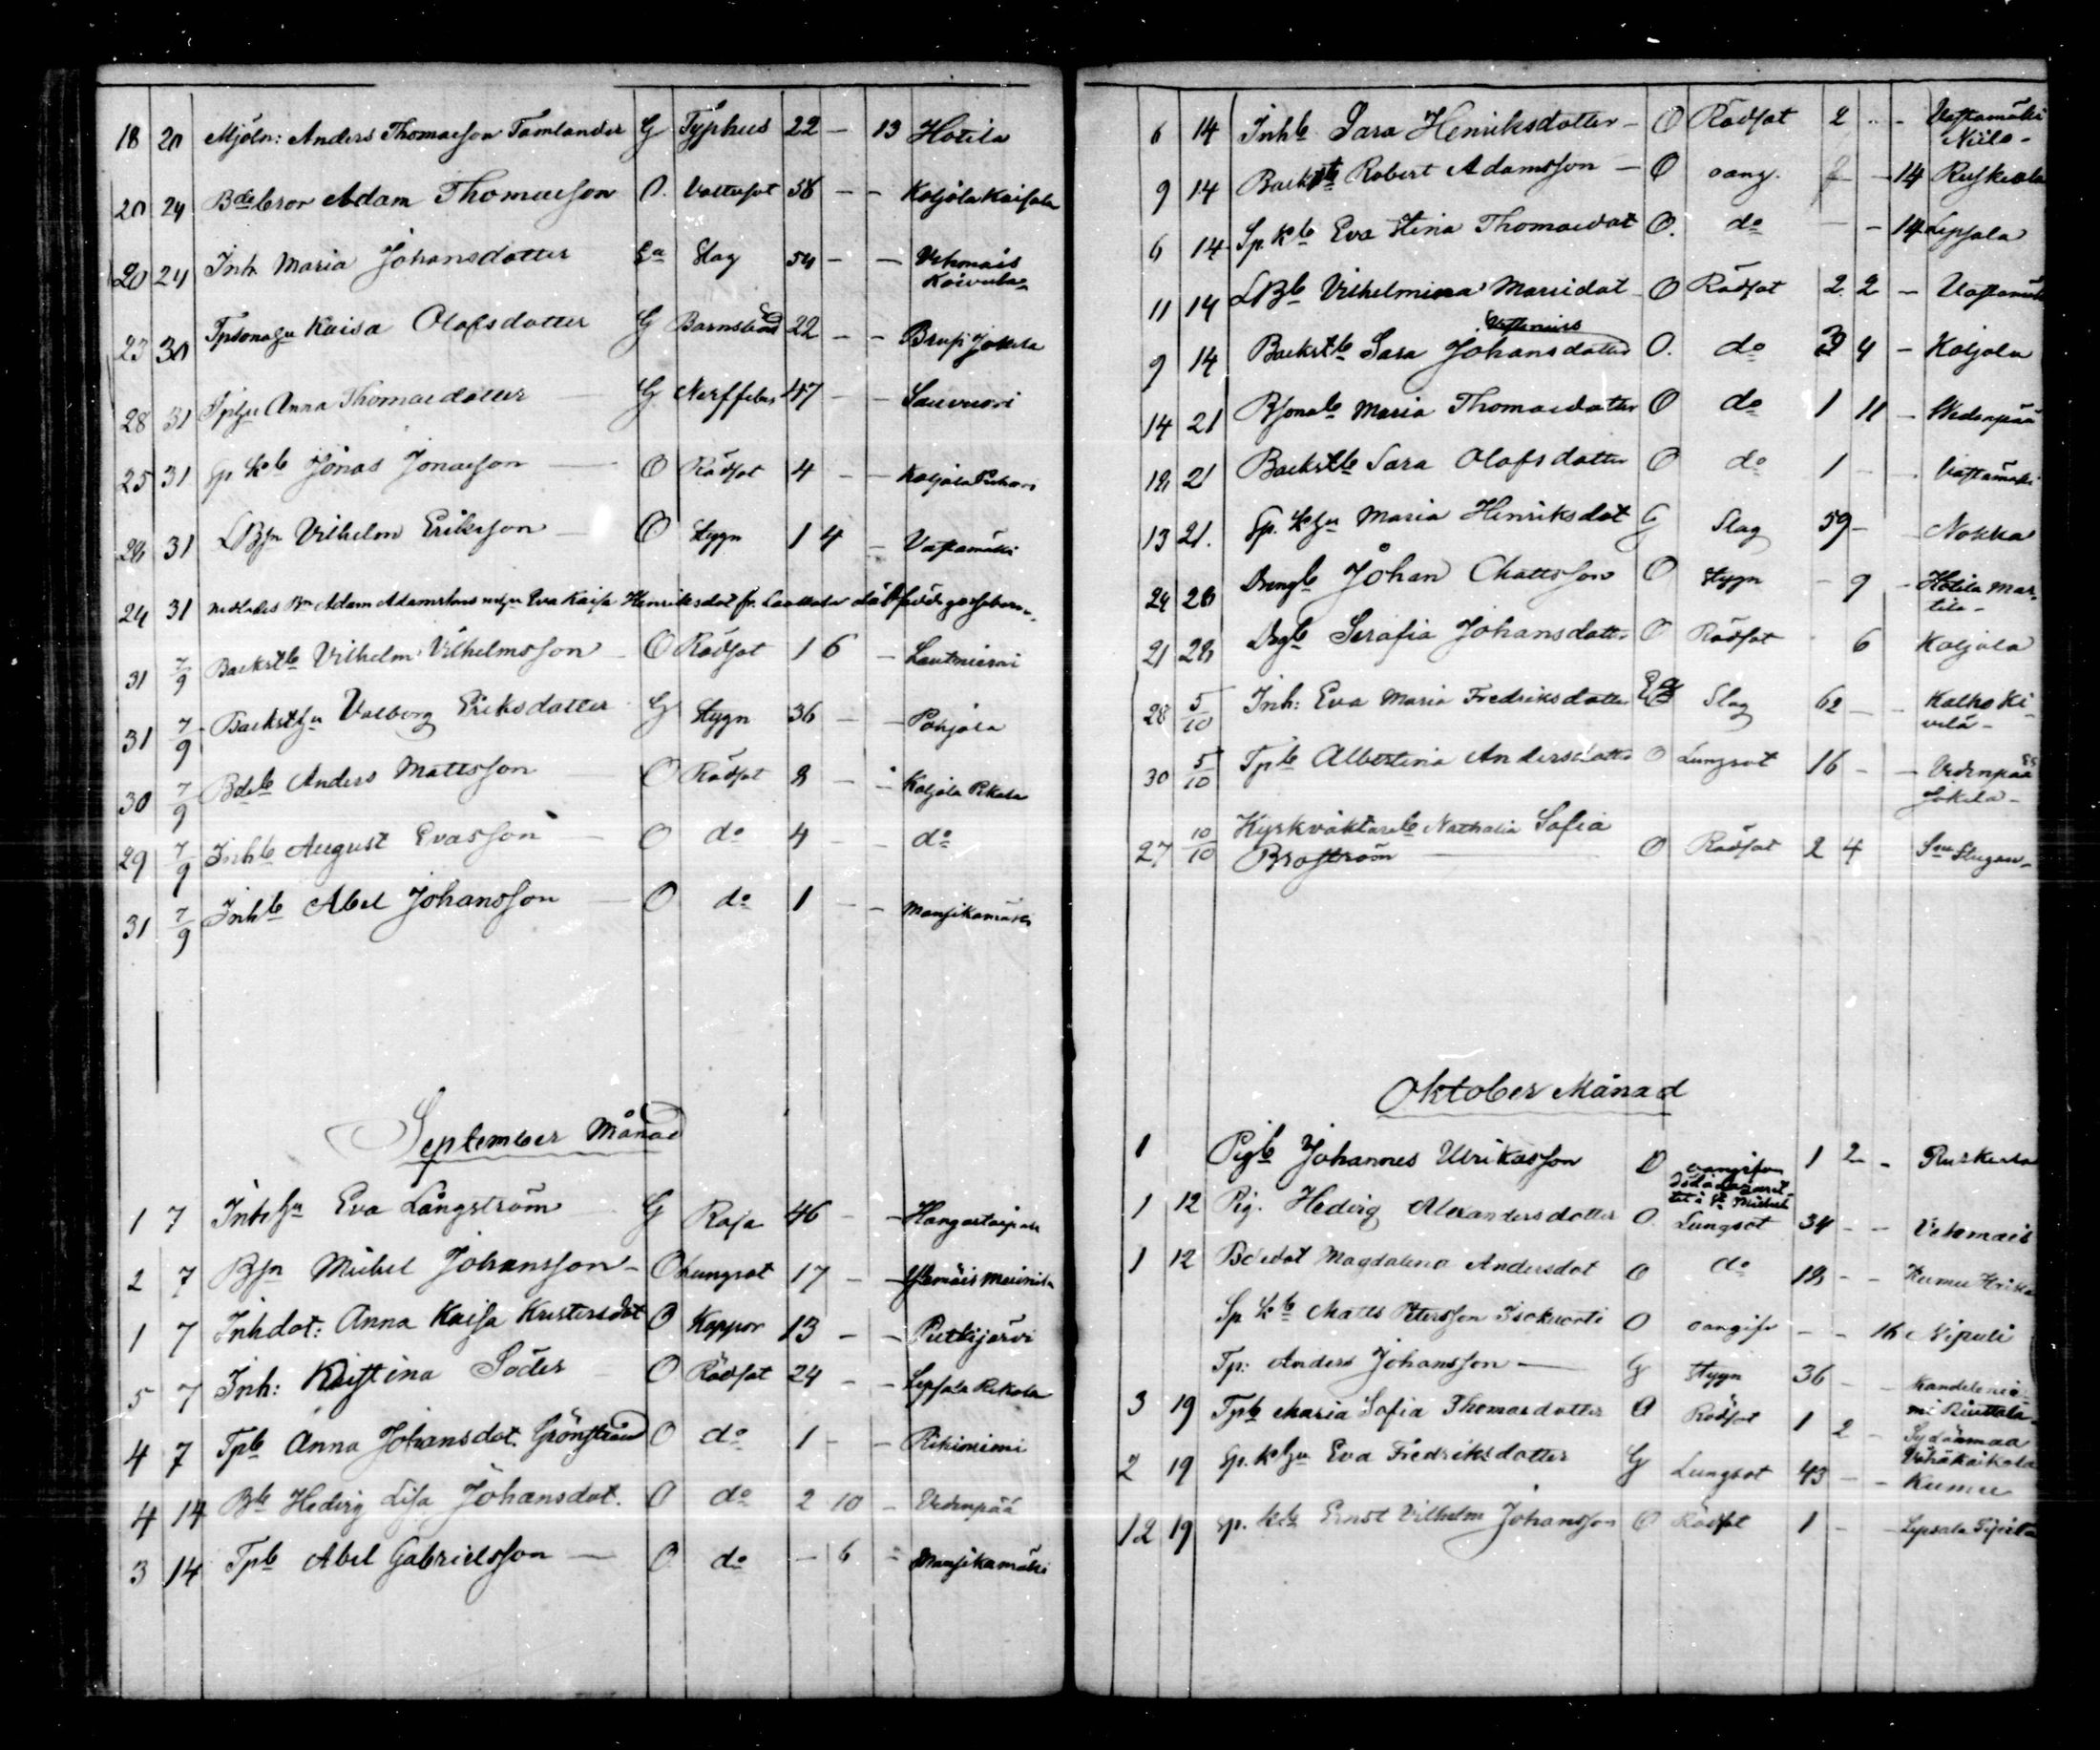 18 20 Mjöln: Anders Thomasson Tamlander G Typhus 22 – 13 Hotila
20 24 Bdebror Adam Thomasson O. Vattusot 56 – – Koljola Kaisala
20 24 Inh. Maria Johansdotter Ea Slag 54 – – Vehmais
Koivula
23 30 Kaisa Olofsdotter G Barnsbörd 22 – – Jokela
28 31 Anna Thomasdotter G Nerffeber 47 – – Sauvuori
25 31 Sp Kb Jonas Jonasson O Rödsot 4 – – Koljola
28 31 Vilhelm Eriksson O Stygn 1 4 – Vastamäki
24 31 Adam Adamssons Eva Kaisa Henriksdot fr.
31 7/9 Backstb Vilhelm Vilhelmsson O Rödsot 1 6 –
31 7/9 Valborg Eriksdotter G Stygn 36 – – Pohjola
30 7/9 Bdeb Anders Mattsson O Rödsot 8 – – Koljola Pekala
29 7/9 Inhb August Evasson O do 4 – – do
31 7/9 Inhb Abel Johansson O do 1 – – Mansikamäki
September Månad
1 7 Eva Långström G Rosa 46 – –
2 7 Bsn Mikel Johansson – O Lungsot 17 – –
1 7 Inhdot: Anna Kaisa Kristersdot O Koppor 13 – – Putkijärvi
5 7 Inh: Kristina Söder O Rödsot 24 – – Lepsala Pekola
4 7 Tpb Anna Johansdot. Grönstrand O do 1 – –
4 14 Bb Hedvig Lisa Johansdot. O do 2 10 – Vedenpää
3 14 Tpb Abel Gabrielsson O do – 6 – Mansikamäki
6 14 Inhb Sara Henriksdotter – O Rödsot 2 – – Vastamäki
Niilo –
9 14 Backstb Robert Adamsson – O oang. – 14 Ruskeala
6 14 Sp. Kb Eva Stina Thomasdot O. do – – 14 Lepsala
11 14 Vilhelmina Mariidot O Rödsot 2 2 – Vastamäki
9 14 Backstb Sara Johansdotter O. do 3 4 – Koljola
14 21 Maria Thomasdotter O do 1 11 – Vedenpää
18 21 Backstb Sara Olofsdotter O do 1 – – Vastamäki
13 21. Maria Henriksdot G Slag 59 – Nokka
24 28 Drengb Johan Mattsson O Stygn – 9 – Hotila Mar-
tila –
21 28 Serafia Johansdotter O Rödsot 6 Koljola
28 5/10 Inh: Eva Maria Fredriksdotter Ea Slag 62 – – Kalhoki-
vilä –
30 5/10 Tpb Albertina Andersdotter O Lungsot 16 – – Vedenpää
Jokela –
27 10/10 Kyrkväktareb Nathalia Sofia
Broström O Rödsot 2 4
Oktober Månad
1 Pigb Johannes Ulrikasson O oangifven 1 2 –
död å Lazaret-
tet i St. Michel
1 12 Pig. Hedvig Alexandersdotter O. Lungsot 34 – – Vehmais
1 12 Bdedot Magdalena Andersdot O do 18 – –
Sp Kb Matts Petersson Isokuorti O oangifv – – 16 Nipuli
Tp: Anders Johansson – G Stygn 36 – –
3 19 Tpb Maria Sofia Thomasdotter O Rödsot 1 2 – Sydänmaa
2 19 Eva Fredriksdotter G Lungsot 43 – –
12 19 Sp. Kb Ernst Vilhelm Johansson O Rödsot 1 – – Lepsala